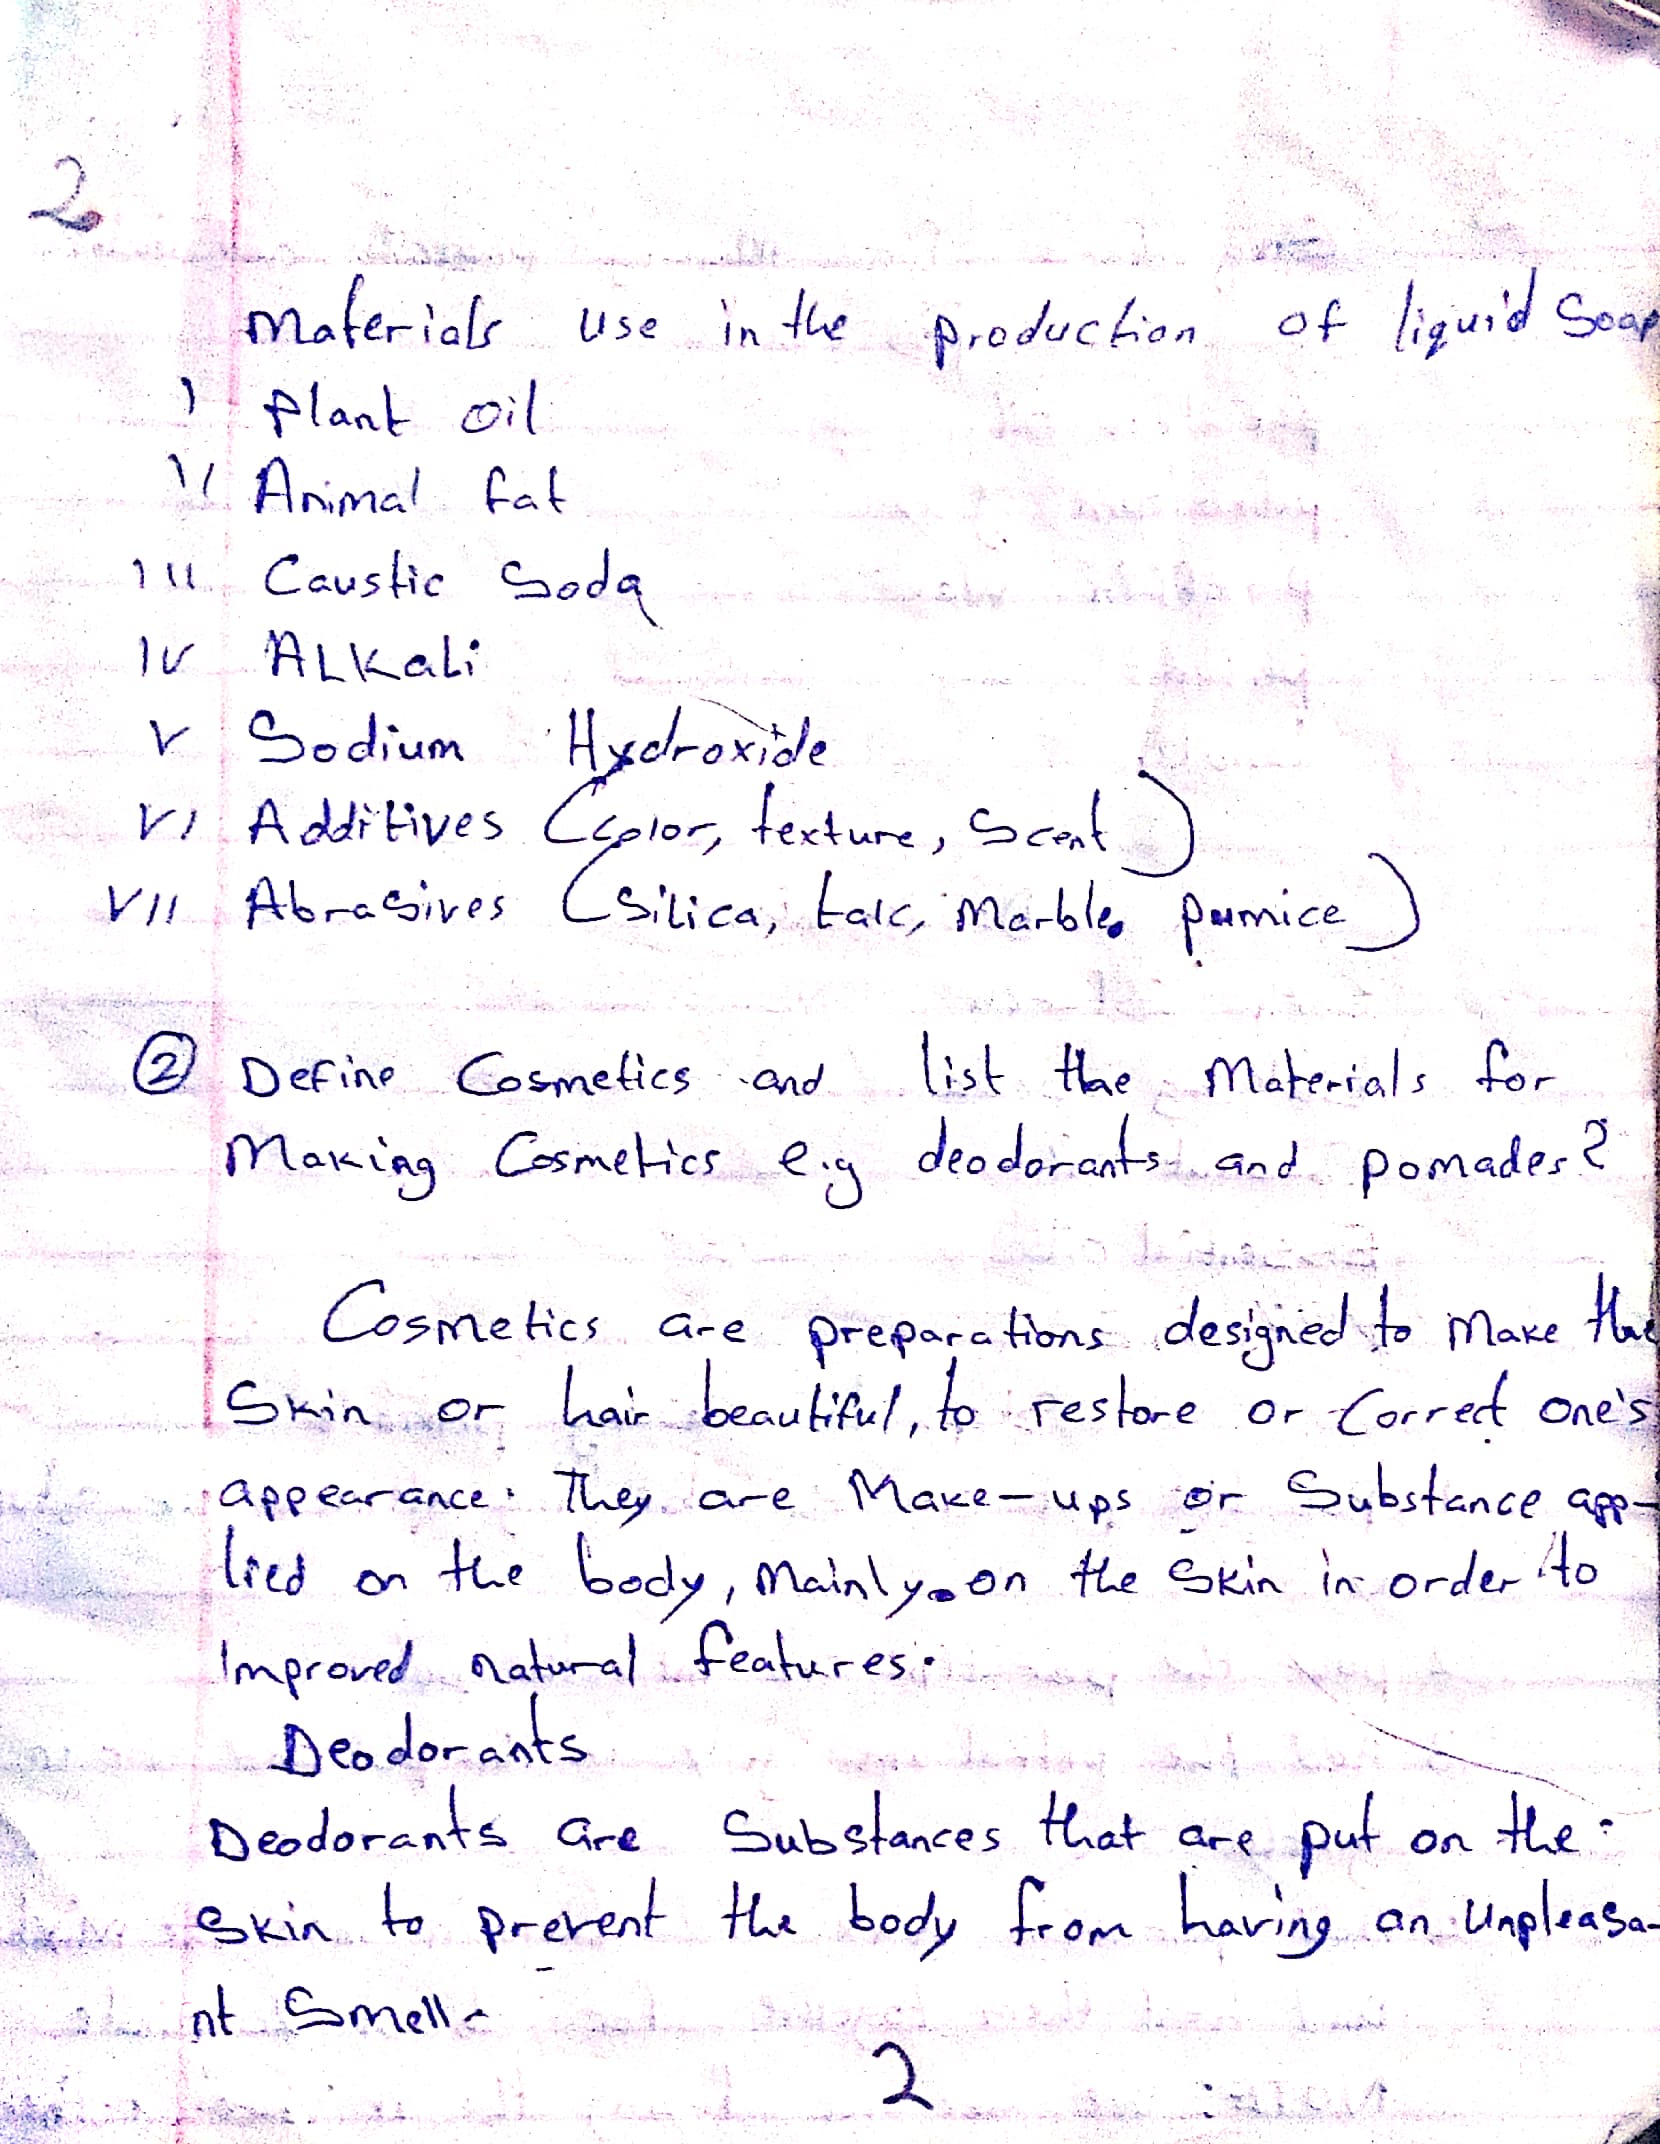 2
Materials use in the production of liquid Soap
I Plant oil
II Animal fat
III Caustic Soda
IV ALKali
V Sodium Hydroxide
VI Additives (Color, texture, Scent)
VII Abrasives (Silica, talc, Marble, pumice)
② Define Cosmetics and list the Materials for
Making Cosmetics e.g deodorants and pomades?
Cosmetics are preparations designed to make the
Skin or hair beautiful, to restore or Correct one's
appearance. They are Make-ups or Substance app-
lied on the body, Mainly on the Skin in order to
Improved natural features.
Deodorants
Deodorants are Substances that are put on the
Skin to prevent the body from having an Unpleasa-
nt Smell.
2